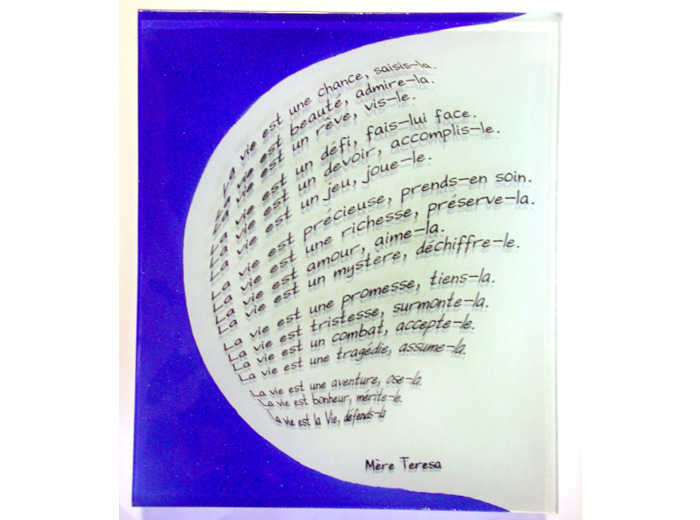 La vie est une chance, saisis-la.
La vie est beauté, admire-la.
La vie est un rêve, vis-le.
La vie est un défi, fais-lui face.
La vie est un devoir, accomplis-le.
La vie est un jeu, joue-le.
La vie est précieuse, prends-en soin.
La vie est une richesse, préserve-la.
La vie est amour, aime-la.
La vie est un mystère, déchiffre-le.
La vie est une promesse, tiens-la.
La vie est tristesse, surmonte-la.
La vie est un combat, accepte-le.
La vie est une tragédie, assume-la.
La vie est une aventure, ose-la.
La vie est bonheur, mérite-le.
La vie est la Vie, défends-la
Mère Teresa